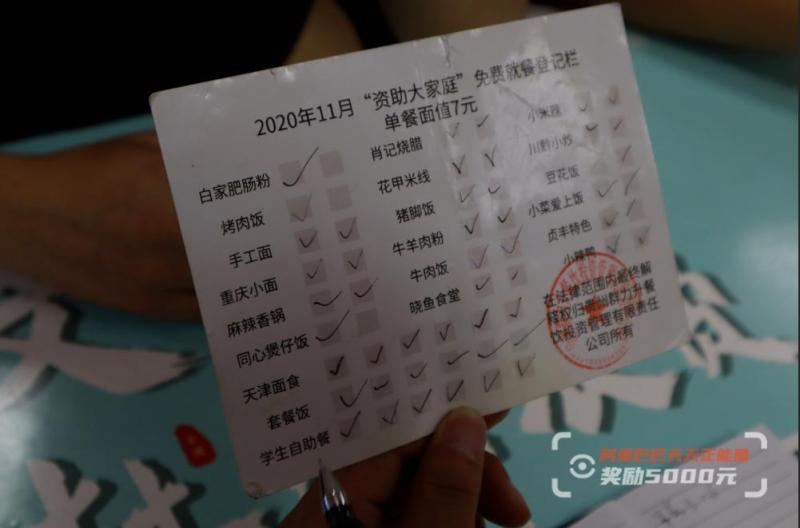 2020年11月“资助大家庭”免费就餐登记栏
单餐面值7元
白家肥肠粉
烤肉饭
手工面
重庆小面
麻辣香锅
同心煲仔饭
天津面食
套餐饭
学生自助餐
肖记烧腊
花甲米线
猪脚饭
牛羊肉粉
牛肉饭
晓鱼食堂
川黔小炒
豆花饭
小菜爱上饭
贞丰特色
在法律范围内最终解
释权归贵州群力升餐
饮投资管理有限责任
公司所有
奖励5000元